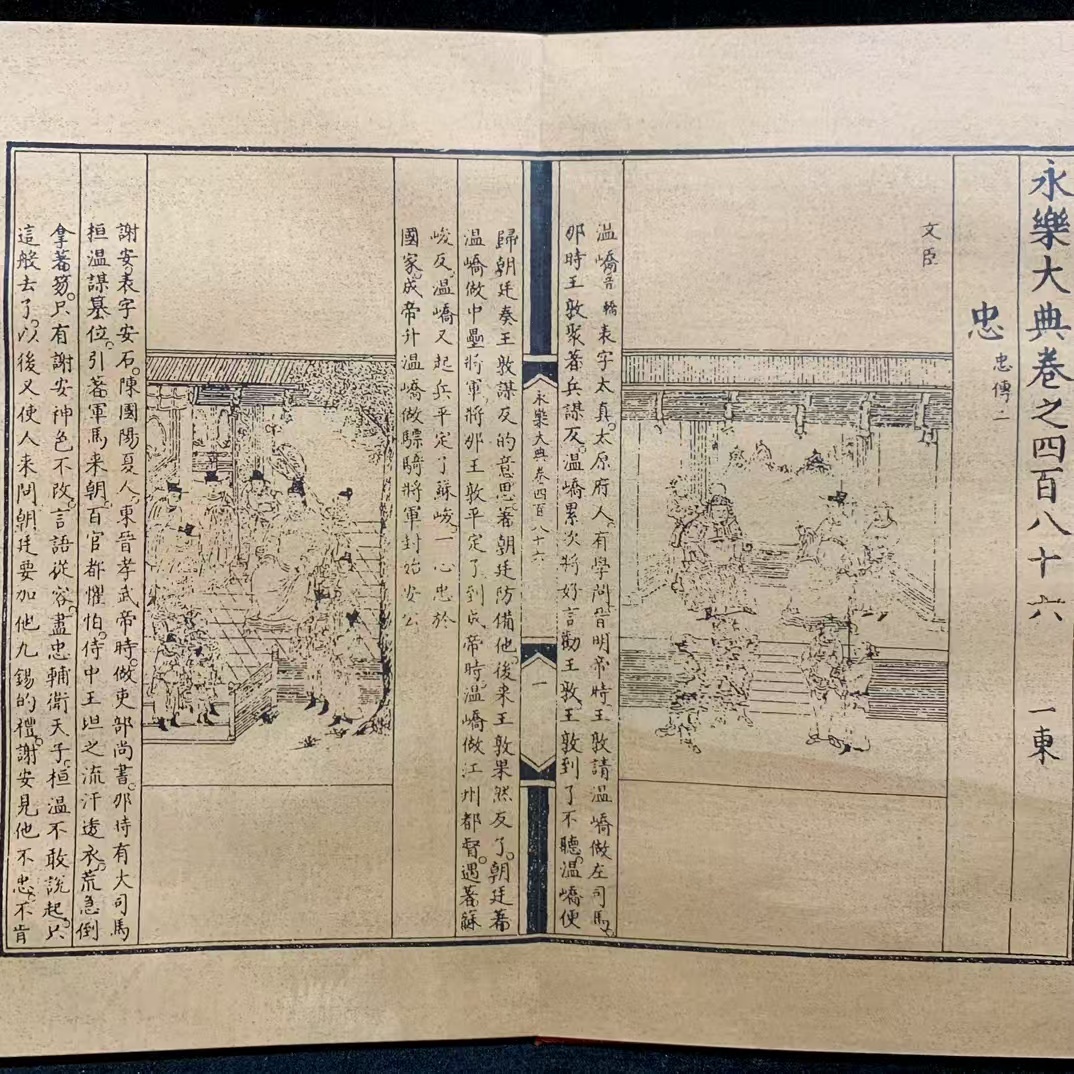 永樂大典卷之四百八十六 一東
忠 忠傳二
文臣
溫嶠音轎表字太真太原府人有學問晉明帝時王敦請溫嶠做左司馬
那時王敦聚著兵謀反溫嶠累次將好言勸王敦王敦到了不聽溫嶠便
永樂大典卷四百八十六
一
歸朝廷奏王敦謀反的意思著朝廷防備他後來王敦果然反了朝廷著
溫嶠做中壘將軍將那王敦平定了到成帝時溫嶠做江州都督遇著蘇
峻反溫嶠又起兵平定了蘇峻一心忠於
國家成帝升溫嶠做驃騎將軍封始安公
謝安表字安石陳國陽夏人東晉孝武帝時做吏部尚書那時有大司馬
桓溫謀篡位引著軍馬来朝百官都懼怕侍中王坦之流汗透衣荒急倒
拿著笏只有謝安神色不改言語從容盡忠輔衛天子桓溫不敢說起只
這般去了以後又使人来問朝廷要加他九錫的禮謝安見他不忠不肯